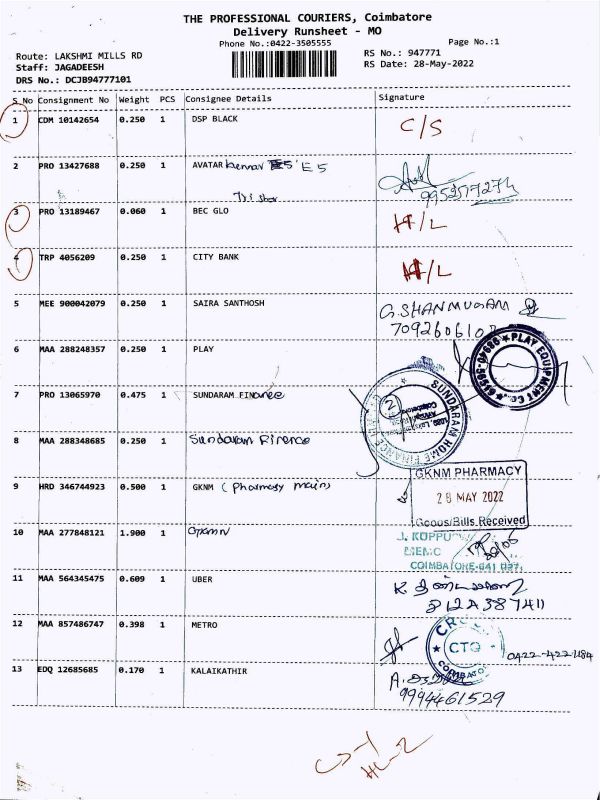 THE PROFESSIONAL COURIERS, Coimbatore
Delivery Runsheet - MO
Phone No.:0422-3505555 Page No.:1
Route: LAKSHMI MILLS RD RS No.: 947771
Staff: JAGADEESH RS Date: 28-May-2022
DRS No.: DCJB94777101
S No Consignment No Weight PCS Consignee Details Signature
1 CDM 10142654 0.250 1 DSP BLACK C/S
2 PRO 13427688 0.250 1 AVATAR E5
3 PRO 13189467 0.060 1 BEC GLO H/L
4 TRP 4056209 0.250 1 CITY BANK H/L
5 MEE 900042079 0.250 1 SAIRA SANTHOSH G. SHANMUGAM
6 MAA 288248357 0.250 1 PLAY
PLAY EQUIPMENT CO.
7 PRO 13065970 0.475 1 SUNDARAM FINance
SUNDARAM HOME FINANCE
2
8 MAA 288348685 0.250 1 Sundaram Finence
9 HRD 346744923 0.500 1 GKNM (Pharmasy main)
GKNM PHARMACY
28 MAY 2022
Goods/Bills Received
10 MAA 277848121 1.900 1 GKNM
COIMBATORE-641 037.
11 MAA 564345475 0.609 1 UBER
12 MAA 857486747 0.398 1 METRO
CTO
13 EDQ 12685685 0.170 1 KALAIKATHIR
9994461529
CS-1
HL-2